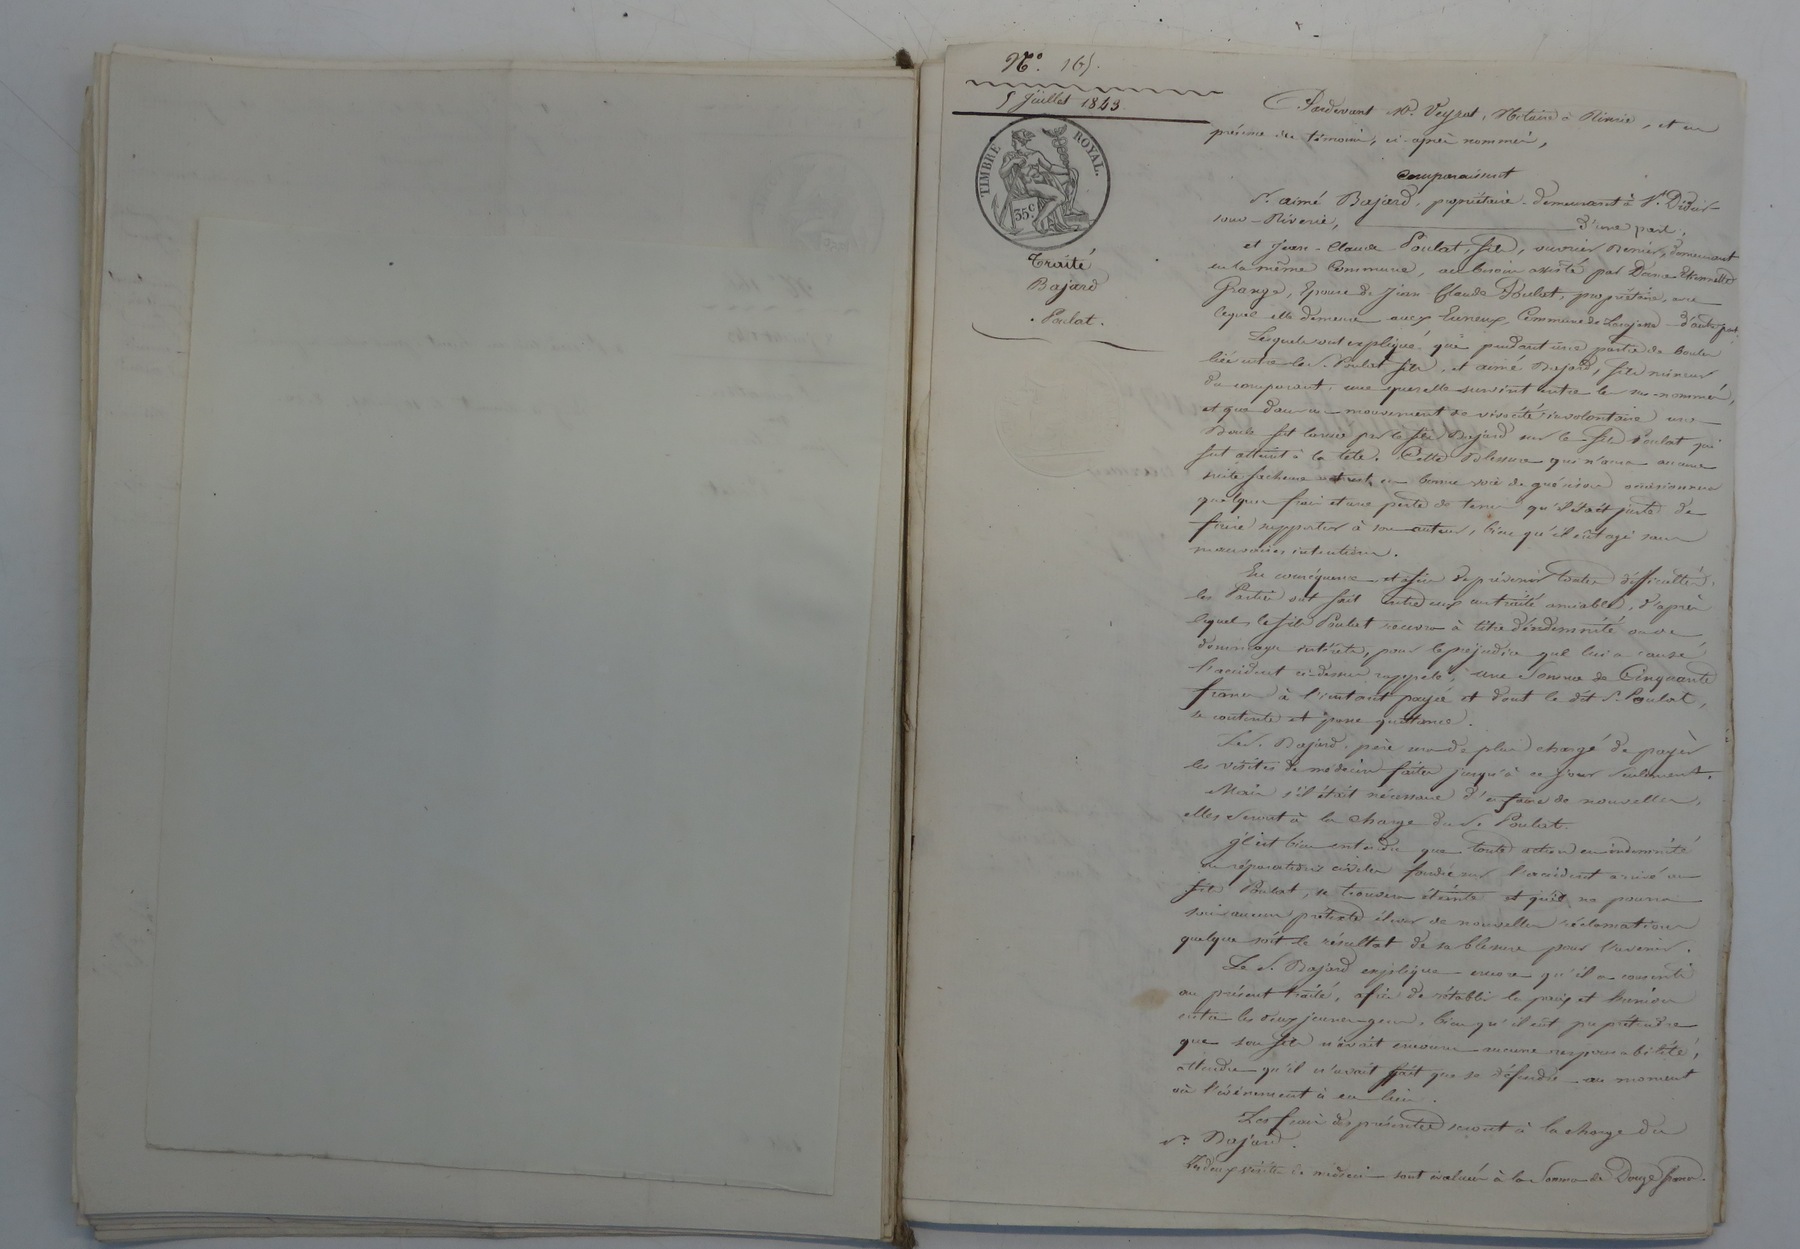 N.° 165.
5 Juillet 1843
TIMBRE ROYAL.
35 c
Traité
Bajard
Poulat.
Pardevant Me. Veyrat, Notaire à Riverie, et en
présence des témoins, ci-après nommés,
Comparaissent
Sr. aimé Bajard, propriétaire demeurant à St. Didier
sous-Riverie, d'une part.
et Jean-Claude Poulat fils, ouvrier Menuisier, demeurant
en la même Commune, au besoin assisté par Dame Etiennette
Grange, Epouse de Jean Claude Poulat, propriétaire, avec
lequel elle demeure aux Commune de d'autre part.
Lesquels ont expliqué, que pendant une partie de boules
liée entre le S. Poulat fils, et aimé Bajard, fils mineur
du comparant, une querelle survint entre les sus-nommés,
et que dans un mouvement de vivacité involontaire une
Boule fut lancée par le fils Bajard sur le fils Poulat qui
fut atteint à la tête. Cette Blessure qui n'aura aucune
suite facheuse et est en bonne voie de guérison occasionnera
quelques frais et une perte de tems qu'il était juste de
faire supporter à son auteur, bien qu'il eut agi sans
mauvaises intentions.
En conséquence et afin de prévenir toutes difficultés,
les Parties ont fait entre eux un traité amiable, d'après
lequel le fils Poulat recevra à titre d'indemnité ou de
dommages intérêts, pour le préjudice que lui a causé
l'accident ci-dessus rappelé, une Somme de Cinquante
francs à l'instant payée et dont le dit S. Poulat,
se contente et passe quittance.
Le S. Bajard père sera de plus chargé de payer
les visites de médecin faites jusqu'à ce jour seulement.
Mais s'il était nécessaire d'en faire de nouvelles,
elles seront à la charge du S. Poulat.
il est bien entendu que toute action en indemnité
ou réparations civiles fondée sur l'accident arrivé au
fils Poulat, se trouvera éteinte et qu'il ne pourra
sous aucun prétexte élever de nouvelles réclamations
quelque soit le résultat de sa blessure pour l'avenir.
Le S. Bajard explique encore qu'il a consenti
au présent traité, afin de rétablir la paix et l'union
entre les deux jeunes-gens, bien qu'il eut pu prétendre
que son fils n'avait encouru aucune responsabilité,
attendu qu'il n'avait fait que se défendre au moment
où l'événement à eu lieu.
Les frais des présentes seront à la charge du
Sr. Bajard.
Les deux visites de médecin sont évaluées à la Somme de Douze francs.